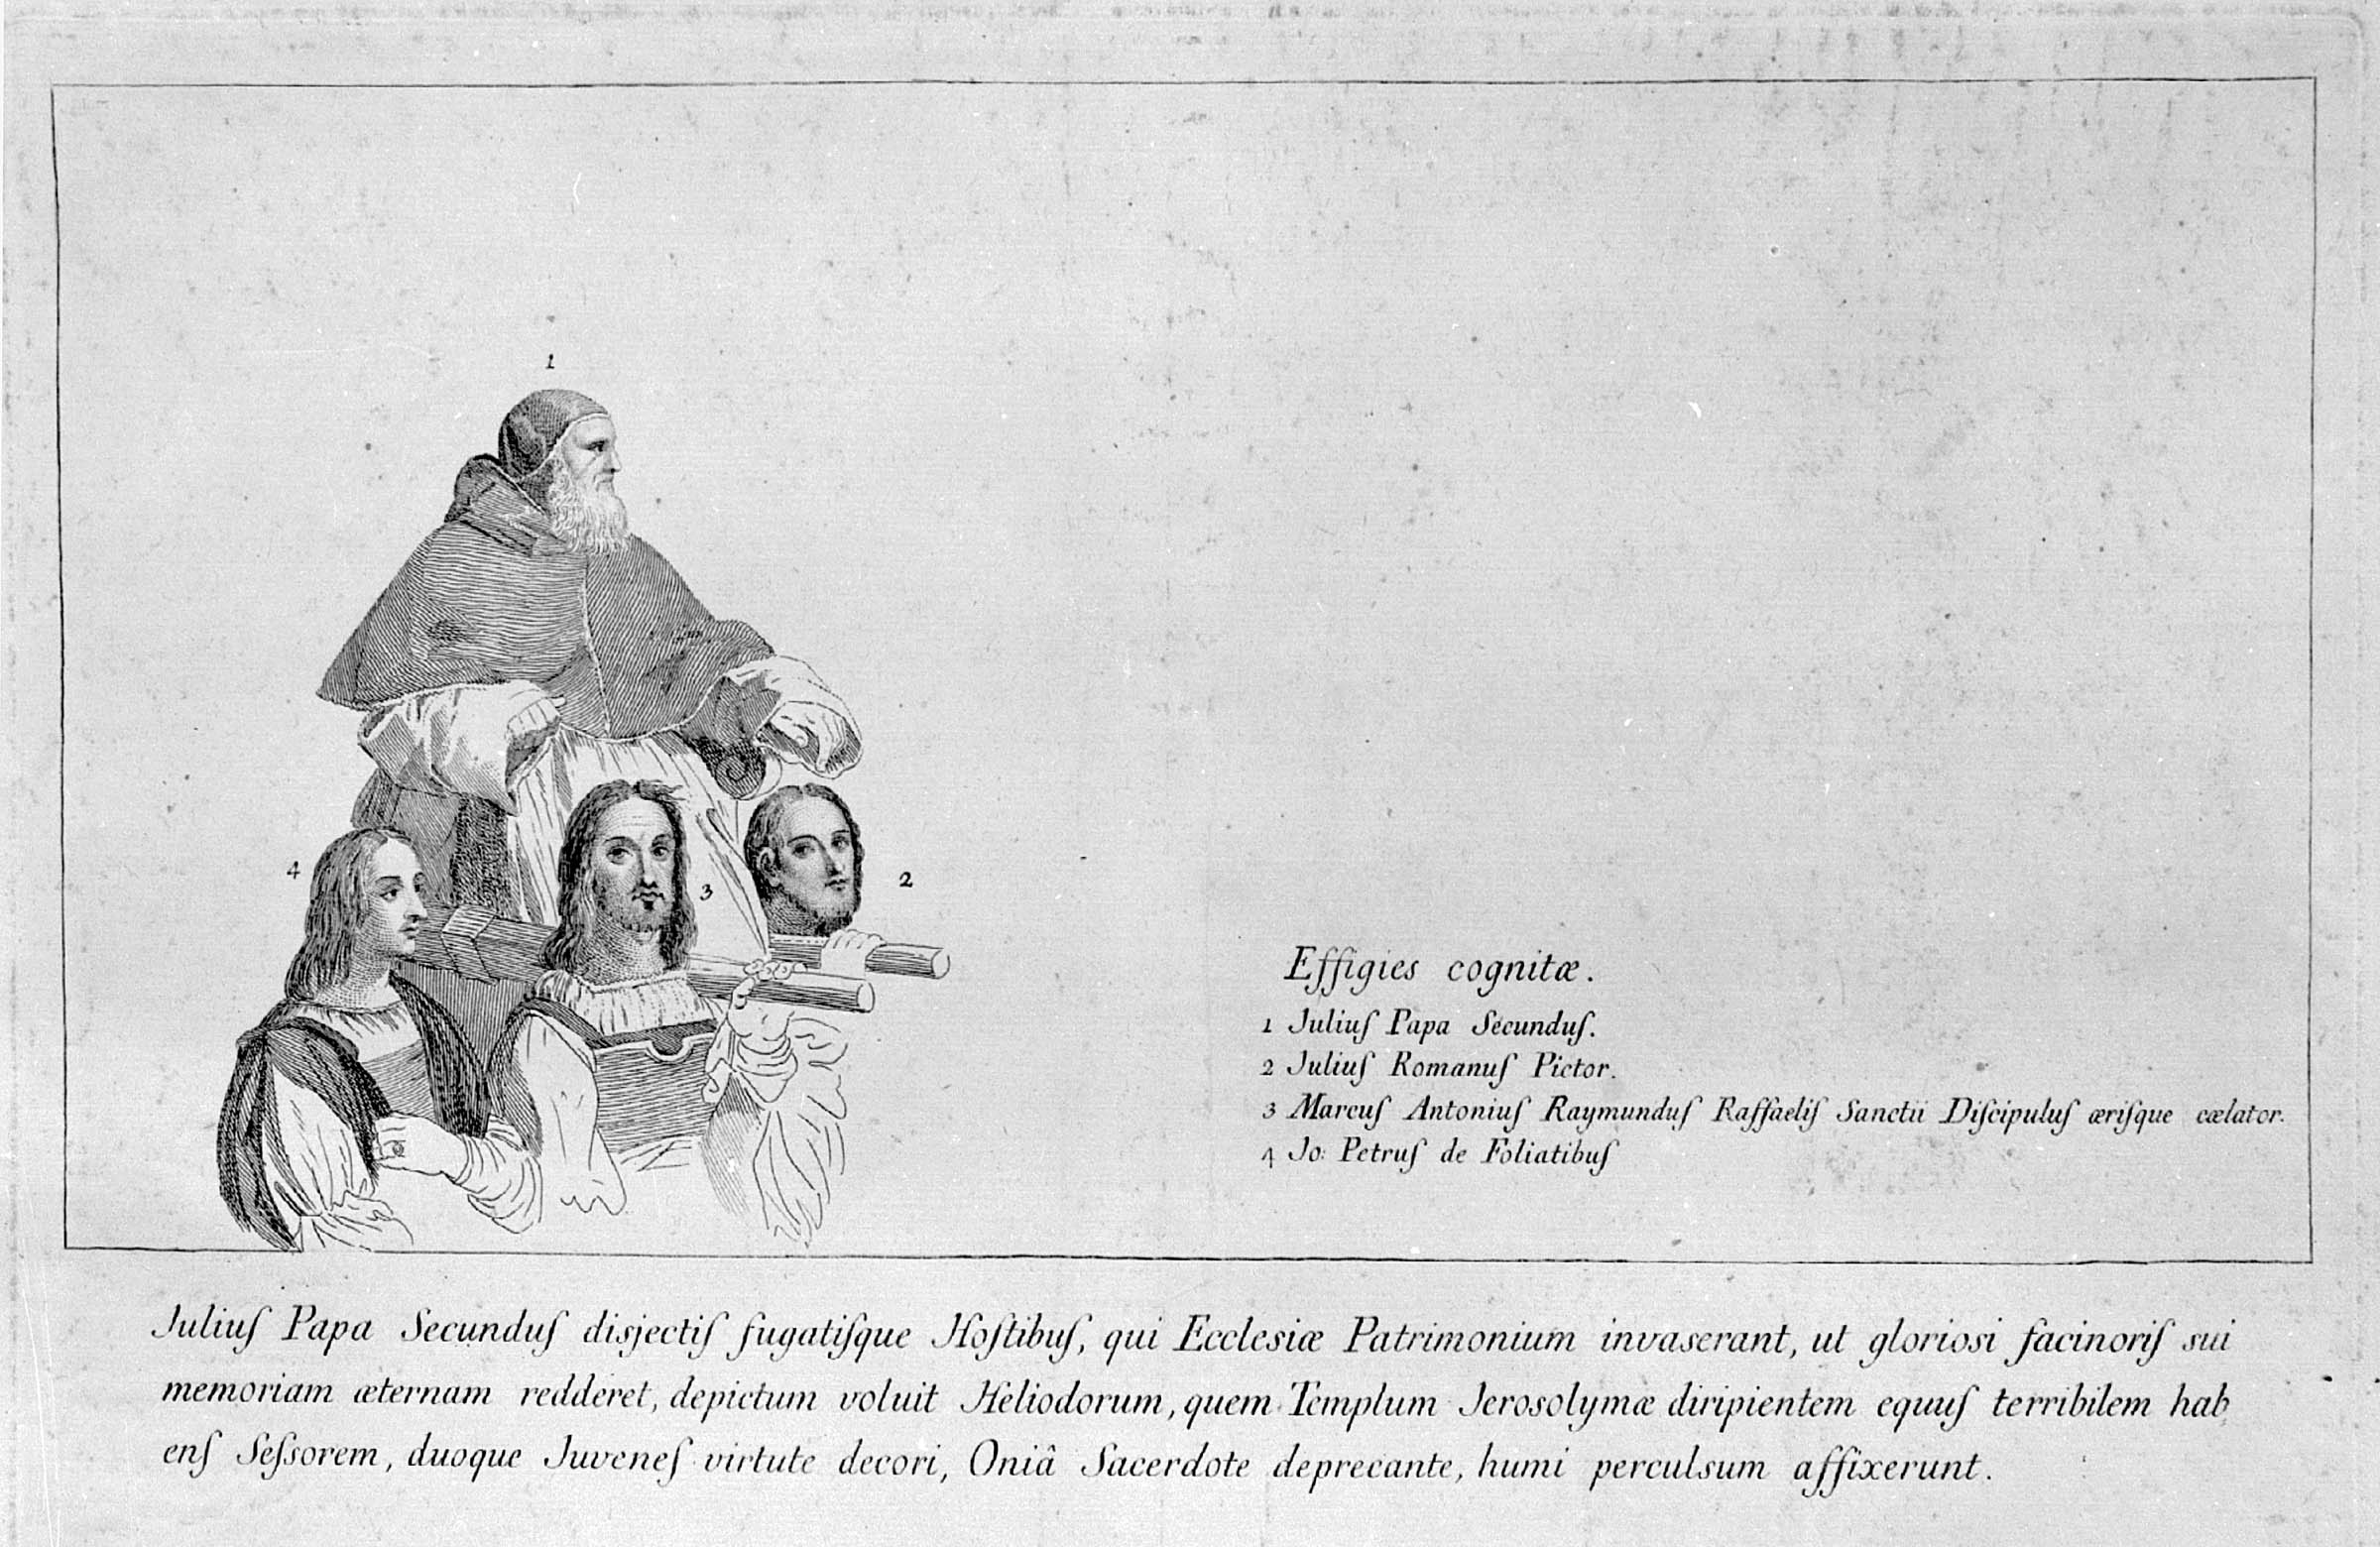 1
4
3
2
Effigies cognitæ.
1 Juliuſ Papa Secunduſ.
2 Juliuſ Romanuſ Pictor.
3 Marcuſ Antoniuſ Raymunduſ Raffaeliſ Sanctii Diſcipuluſ æriſque cælator.
4 Jo: Petruſ de Foliatibuſ
Juliuſ Papa Secunduſ disjectiſ fugatiſque Hoſtibuſ, qui Ecclesiæ Patrimonium invaserant, ut gloriosi facinoriſ sui
memoriam æternam redderet, depictum voluit Heliodorum, quem Templum Jerosolymæ diripientem equuſ terribilem hab
enſ Seſsorem, duoque Juveneſ virtute decori, Oniâ Sacerdote deprecante, humi perculsum affixerunt.